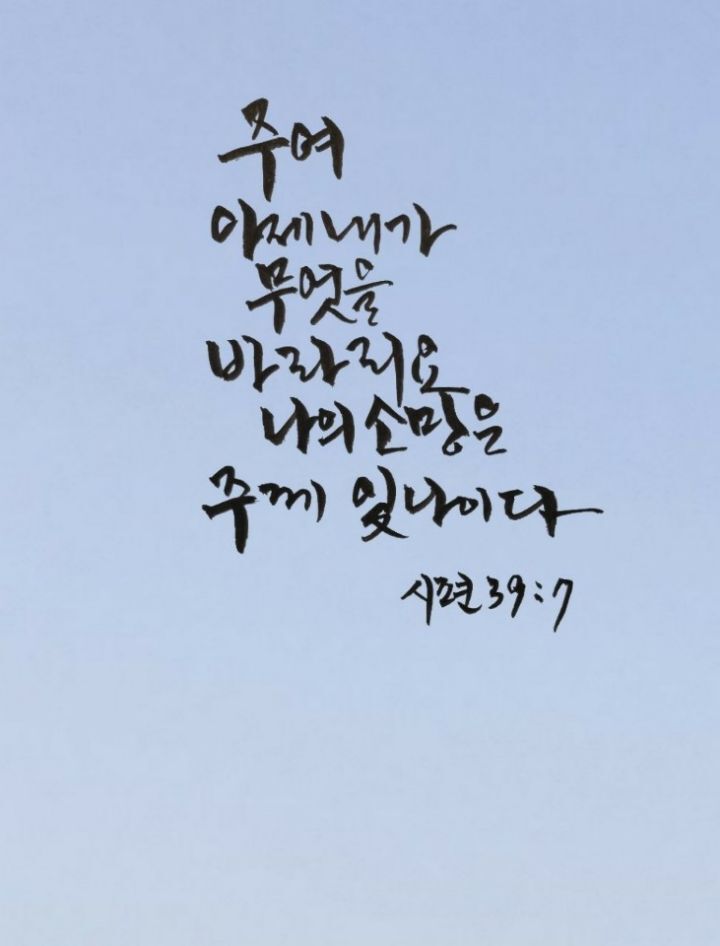 주여
이제 내가
무엇을
바라리요
나의 소망은
주께 있나이다
시편 39:7